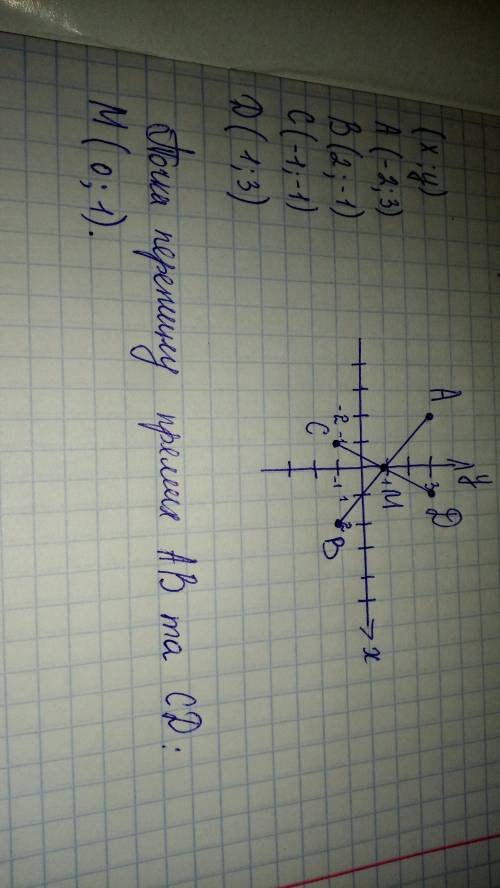 (x ; y)
A (-2; 3)
B (2 ; -1)
C (-1; -1)
D ( 1; 3)
y
A
D
3
1
M
-2
-1
C
-1
1
2
B
x
Точка перетину прямих AB та CD :
M ( 0 ; 1).